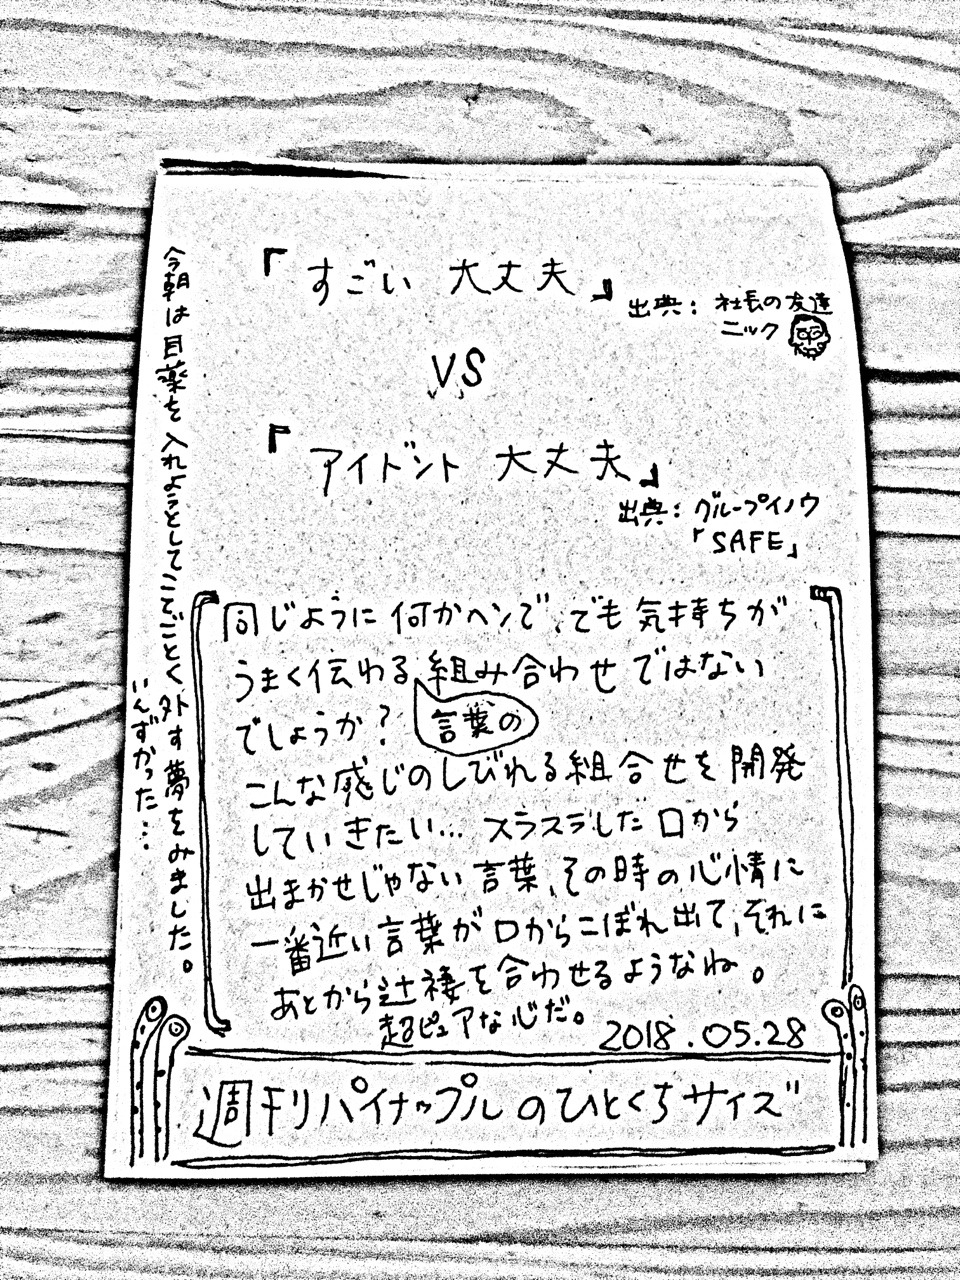 『すごい 大丈夫』
出典：社長の友達
ニック
VS
『アイドント 大丈夫』
出典：グループイノウ
「SAFE」
同じように何かヘンで、でも気持ちが
うまく伝わる組み合わせではない
でしょうか？
言葉の
こんな感じのしびれる組合せを開発
していきたい…スラスラした口から
出まかせじゃない言葉、その時の心情に
一番近い言葉が口からこぼれ出て、それに
あとから辻褄を合わせるようなね。
超ピュアな心だ。
2018.05.28
週刊パイナップルのひとくちサイズ
今朝は目薬を入れようとしてことごとく外す夢をみました。
いんずかった…